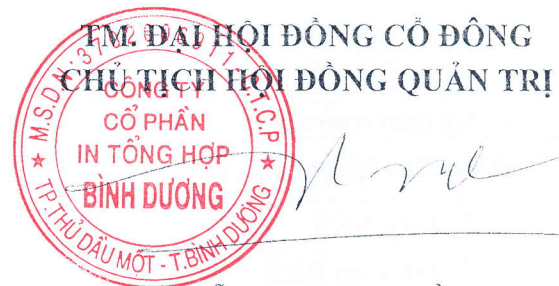 TM. ĐẠI HỘI ĐỒNG CỔ ĐÔNG
CHỦ TỊCH HỘI ĐỒNG QUẢN TRỊ
M.S.D.N:
C.T.C.P
CÔNG TY
CỔ PHẦN
IN TỔNG HỢP
BÌNH DƯƠNG
TP.THỦ DẦU MỘT - T.BÌNH DƯƠNG